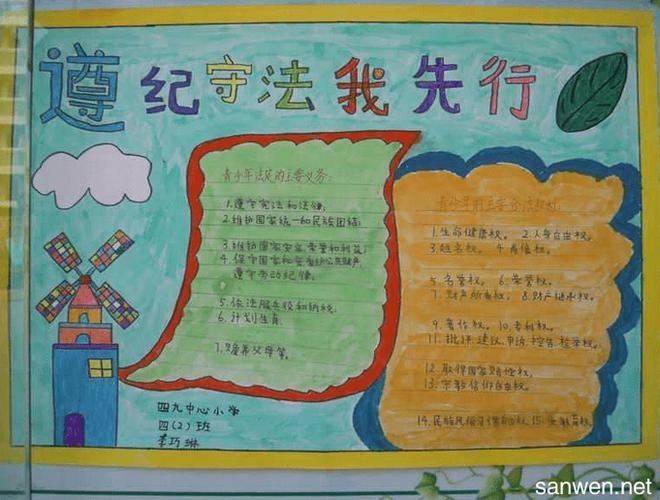 遵纪守法我先行
青少年法定的主要义务:
1.遵守宪法和法律;
2.维护国家统一和民族团结;
3.维护国家安全荣誉和利益;
4.保守国家秘密爱护公共财产,
遵守劳动纪律,
5.依法服兵役和纳税.
6.计划生育.
7.赡养父母等。
四九中心小学
四(2)班
李巧琳
青少年的主要合法权利:
1.生命健康权。 2.人身自由权。
3.姓名权。 4.肖像权。
5.名誉权。 6.荣誉权。
7.财产所有权。 8.财产继承权。
9.著作权。 10.专利权。
11.批评.建议.申诉.控告.检举权。
12.取得国家赔偿权。
13.宗教信仰自由权。
14.民族风俗习惯自由权. 15.受教育权。
sanwen.net